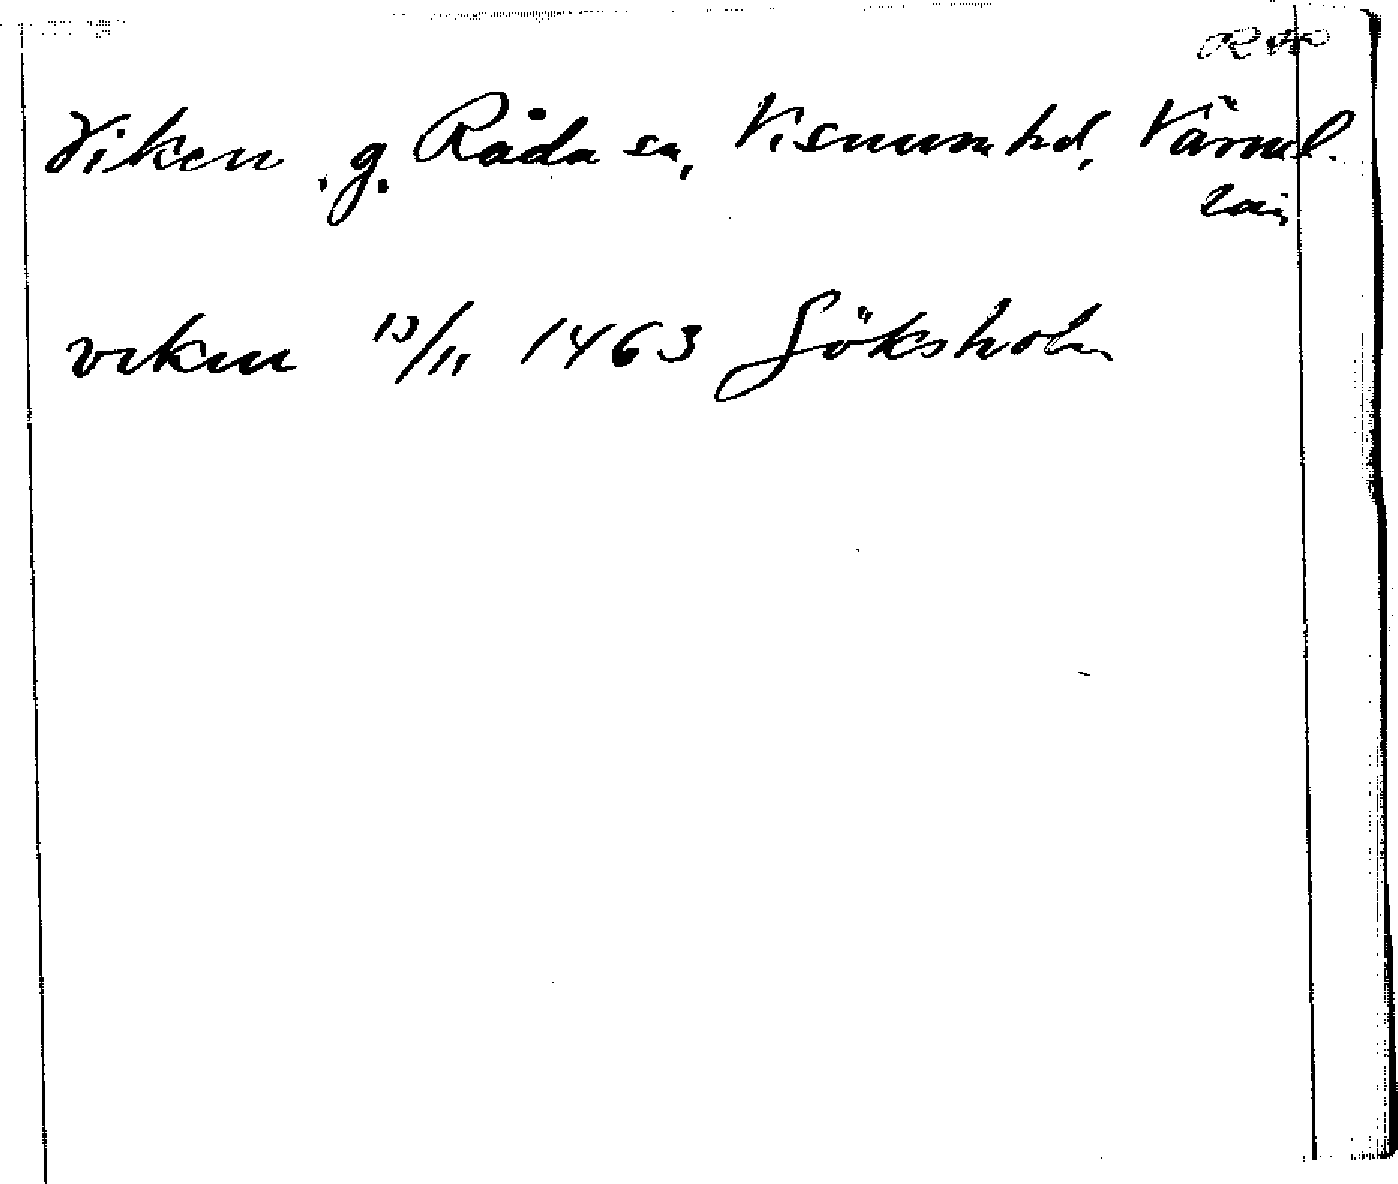 Viken, g. Råda sn, Visnums hd, Värml.
län
viken 13/11 1463 Göksholm